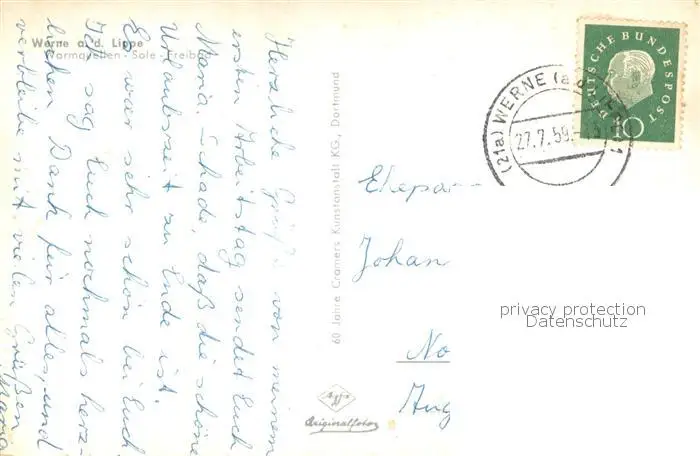 Werne a. d. Lippe
Warmquellen - Sole - Freibad
Herzliche Grüße von meinem
ersten Arbeitstag sendet Euch
Maria. Schade, daß die schöne
Urlaubszeit zu Ende ist.
Es war sehr schön bei Euch.
Ich sag Euch nochmals herz-
lichen Dank für alles, und
verbleibe mit vielen Grüßen
Maria
60 Jahre Cramers Kunstanstalt KG., Dortmund
Agfa
Originalfoto
DEUTSCHE BUNDESPOST
10
(21a) WERNE (a.d.
27.7.59.
1
Ehepar
Johan
No
Aug
privacy protection
Datenschutz